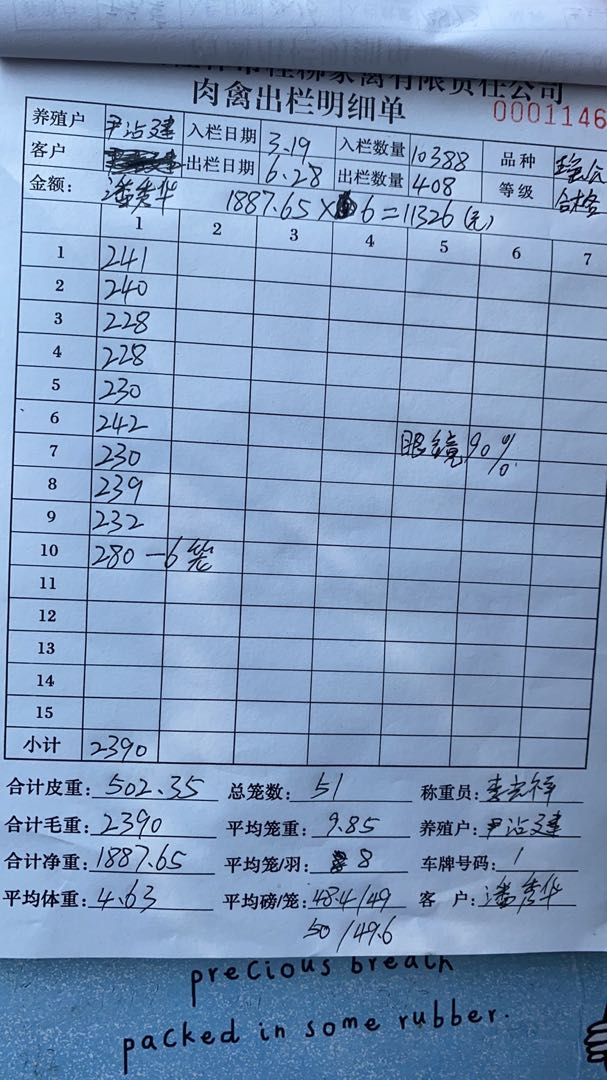 家禽有限责任公司
肉禽出栏明细单
0001146
养殖户 入栏日期 3.19 入栏数量 10388 品种
客户 出栏日期 6.28 出栏数量 408 等级 合格
金额: 潘秀华 1887.65 × 6 = 11326 (元)
1 2 3 4 5 6 7
1 241
2 240
3 228
4 228
5 230
6 242
7 230 眼镜 90%
8 239
9 232
10 280 - 6笼
11
12
13
14
15
小计 2390
合计皮重: 502.35 总笼数: 51 称重员:
合计毛重: 2390 平均笼重: 9.85 养殖户:
合计净重: 1887.65 平均笼/羽: 8 车牌号码: 1
平均体重: 4.63 平均磅/笼: 48.4/49 客 户: 潘秀华
50/49.6
precious breath
packed in some rubber.